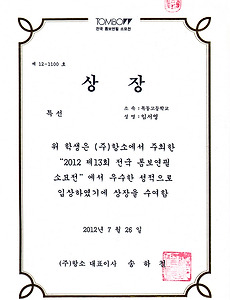 TOMBOW
전국 톰보연필 소묘전
제 12-1100 호
상 장
특선
소 속 : 목동고등학교
성 명 : 임서영
위 학생은 (주)항소에서 주최한
"2012 제13회 전국 톰보연필
소묘전" 에서 우수한 성적으로
입상하였기에 상장을 수여함
2012년 7 월 26 일
(주)항소 대표이사 송 하 철